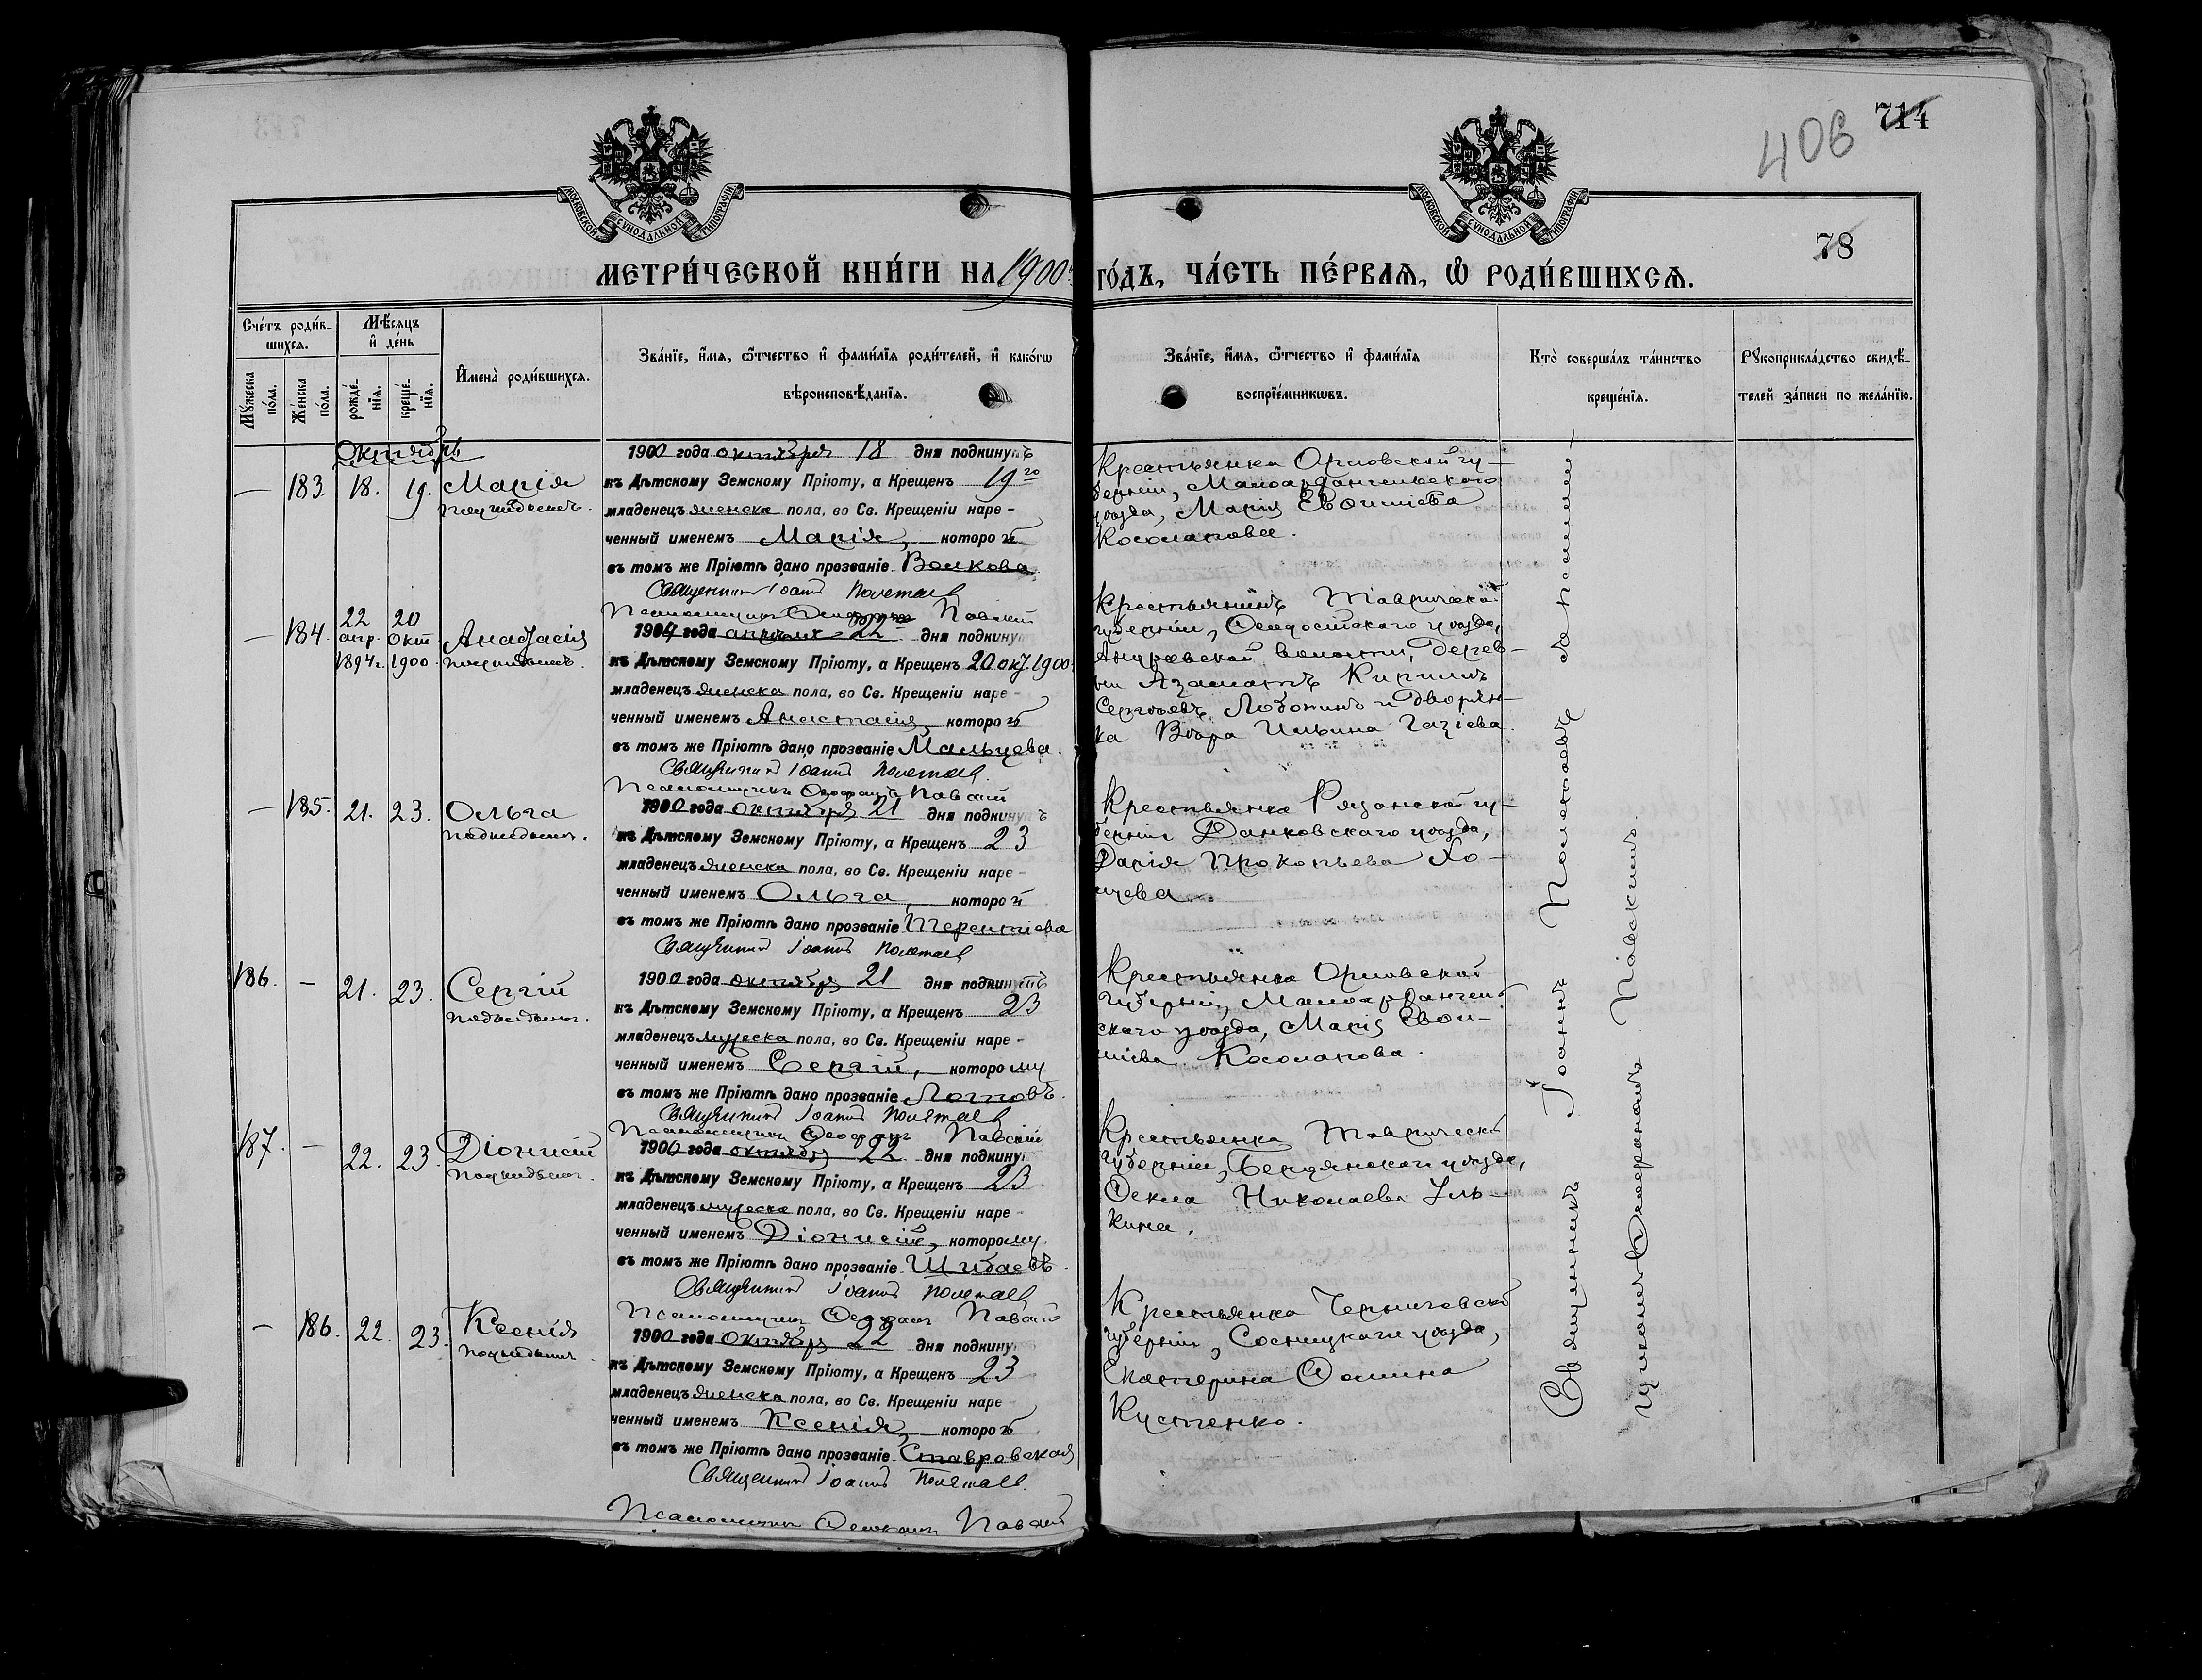 714
406
78
МОСКОВСКОЙ СѴНОДАЛЬНОЙ ТИПОГРАФІИ
МОСКОВСКОЙ СѴНОДАЛЬНОЙ ТИПОГРАФІИ
МЕТРИ́ЧЕСКОЙ КНИ́ГИ НА 1900 ГО́ДЪ, ЧА́СТЬ ПЕ́РВАѦ, Ѽ РОДИ́ВШИХСѦ.
Сче́тъ роди́в-
шихсѧ.
Мѣ́сяцъ
и҆ де́нь
Мꙋ́жеска
по́ла.
Же́нска
по́ла.
рожде́-
нїѧ.
креще́-
нїѧ.
И҆мена̀ роди́вшихсѧ.
Зва́нїе, и҆́мѧ, ѻ҆́тчество и҆ фами́лїѧ роди́телей, и҆ како́гѡ
вѣроисповѣ́данїѧ.
Зва́нїе, и҆́мѧ, ѻ҆́тчество и҆ фами́лїѧ
воспрїе́мникѡвъ.
Кто̀ соверша́лъ та́инство
креще́нїѧ.
Рꙋкоприкла́дство свидѣ́-
телей за́писи по жела́нїю.
Октябрь
— 183. 18. 19. Марія
подкидышъ.
1900 года октября 18 дня подкинутъ
къ Дѣтскому Земскому Пріюту, а Крещенъ 19го
младенецъ женска пола, во Св. Крещеніи наре-
ченный именемъ Марія, которой
въ томъ же Пріютѣ дано прозваніе Волкова.
Священникъ Іоаннъ Полетаевъ
Псаломщикъ Ѳеофанъ Павскій
Крестьянка Орловской гу-
берніи, Малоархангельскаго
уѣзда, Марія Евстиѳѣева
Косолапова.
— 184. 22 апр. 1894 г. 20 окт 1900. Анастасія
подкидышъ.
1894 года апрѣля 22 дня подкинутъ
къ Дѣтскому Земскому Пріюту, а Крещенъ 20 окт. 1900
младенецъ женска пола, во Св. Крещеніи наре-
ченный именемъ Анастасія, которой
въ томъ же Пріютѣ дано прозваніе Мальцева.
Священникъ Іоаннъ Полетаевъ.
Псаломщикъ Ѳеофанъ Павскій
Крестьянинъ Таврической
губерніи, Ѳеодосійскаго уѣзда,
волости, дерев-
ни Азаматъ Кириллъ
Сергѣевъ Лоботинъ и дворян-
ка Вѣра Ильина Газіева.
— 185. 21. 23. Ольга
подкидышъ.
1900 года октября 21 дня подкинутъ
къ Дѣтскому Земскому Пріюту, а Крещенъ 23
младенецъ женска пола, во Св. Крещеніи наре-
ченный именемъ Ольга, которой
въ томъ же Пріютѣ дано прозваніе Терентіева
Священникъ Іоаннъ Полетаевъ
Крестьянка Рязанской гу-
берніи Данковскаго уѣзда,
Дарія Прокопьева
186. — 21. 23. Сергій
подкидышъ.
1900 года октября 21 дня подкинутъ
къ Дѣтскому Земскому Пріюту, а Крещенъ 23
младенецъ мужеска пола, во Св. Крещеніи наре-
ченный именемъ Сергій, которому
въ томъ же Пріютѣ дано прозваніе
Священникъ Іоаннъ Полетаевъ
Псаломщикъ Ѳеофанъ Павскій
Крестьянка Орловской
губерніи, Малоархангель-
скаго уѣзда, Марія
Косолапова.
187. — 22. 23. Діонисій
подкидышъ.
1900 года октября 22 дня подкинутъ
къ Дѣтскому Земскому Пріюту, а Крещенъ 23
младенецъ мужеска пола, во Св. Крещеніи наре-
ченный именемъ Діонисій, которому
въ томъ же Пріютѣ дано прозваніе Шибаевъ.
Священникъ Іоаннъ Полетаевъ
Псаломщикъ Ѳеофанъ Павскій
Крестьянка Таврической
губерніи, Бердянскаго уѣзда,
Ѳекла Николаева Уль-
кина.
— 186. 22. 23. Ксенія
подкидышъ
1900 года октября 22 дня подкинутъ
къ Дѣтскому Земскому Пріюту, а Крещенъ 23
младенецъ женска пола, во Св. Крещеніи наре
ченный именемъ Ксенія, которой
въ томъ же Пріютѣ дано прозваніе Ставровская
Священникъ Іоаннъ Полетаевъ.
Псаломщикъ Ѳеофанъ Павскій
Крестьянка Черниговской
губерніи, Сосницкаго уѣзда,
Екатерина Ѳомина
Кустенко.
Священникъ Іоаннъ Полетаевъ съ псаломщ-
Ѳеофаномъ Павскимъ.